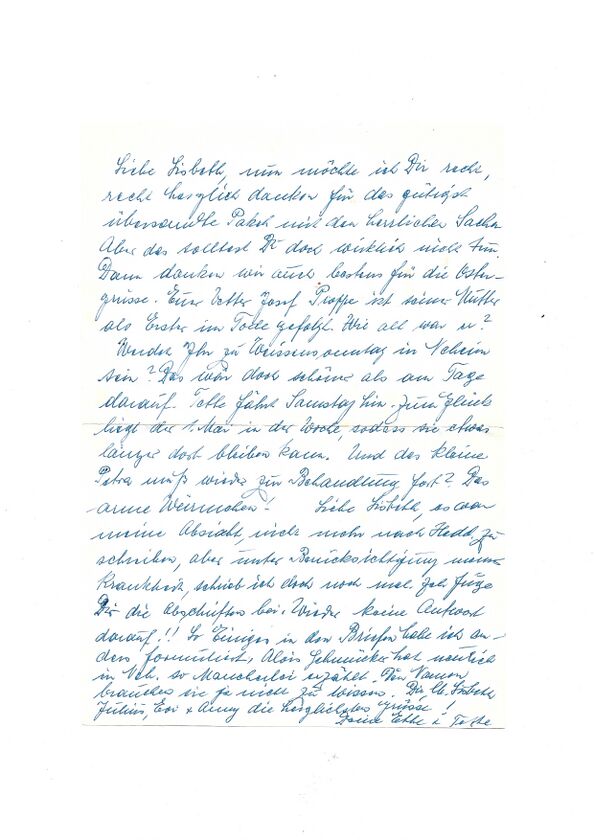 Liebe Lisbeth, nun möchte ich Dir recht,
recht herzlich danken für das gütigst
übersandte Paket mit den herrlichen Sachen.
Aber das solltest Du doch wirklich nicht tun.
Dann danken wir auch bestens für die Oster-
grüsse. Euer Vetter Josef Proppe ist seiner Mutter
als Erster im Tode gefolgt. Wie alt war er?
Werdet Ihr zu Weissensonntag in Neheim
sein? Das wär doch schöner als am Tage
darauf. Tette fährt Samstag hin. Zum Glück
liegt der 1. Mai in der Woche, sodass sie etwas
länger dort bleiben kann. Und das kleine
Petra muß wieder zur Behandlung fort? Das
arme Würmchen! Liebe Lisbeth, es war
meine Absicht, nicht mehr nach Hedd. zu
schreiben, aber unter Berücksichtigung meiner
Krankheit, schrieb ich doch noch mal. Ich füge
Dir die Abschriften bei. Wieder keine Antwort
darauf!! So Einiges in den Briefen habe ich an-
ders formuliert, Alois Schmücker hat neulich
in Neh. so Mancherlei erzählt. Den Namen
brauchen sie ja nicht zu wissen. Dir, lb. Lisbeth,
Julius, Evi + Anny die herzlichsten Grüsse!
Deine Ette u. Tette